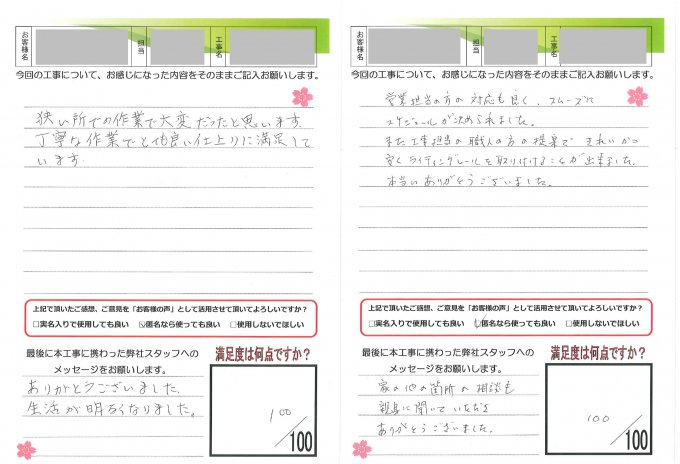 お客様名
担当
工事名
今回の工事について、お感じになった内容をそのままご記入お願いします。
狭い所での作業で大変だったと思います。
丁寧な作業でとても良い仕上りに満足して
います。
上記で頂いたご感想、ご意見を「お客様の声」として活用させて頂いてよろしいですか？
□実名入りで使用しても良い ☑匿名なら使っても良い □使用しないでほしい
最後に本工事に携わった弊社スタッフへの
メッセージをお願いします。
ありがとうございました。
生活が明るくなりました。
満足度は何点ですか？
100
/100
お客様名
担当
工事名
今回の工事について、お感じになった内容をそのままご記入お願いします。
営業担当の方の対応も良く、スムーズに
スケジュールが決められました。
また工事担当の職人の方の提案で きれいかつ
安くライティングレールを取り付けることが出来ました。
本当にありがとうございました。
上記で頂いたご感想、ご意見を「お客様の声」として活用させて頂いてよろしいですか？
□実名入りで使用しても良い ☑匿名なら使っても良い □使用しないでほしい
最後に本工事に携わった弊社スタッフへの
メッセージをお願いします。
家の他の箇所の相談も
親身に聞いていただき
ありがとうございました。
満足度は何点ですか？
100
/100